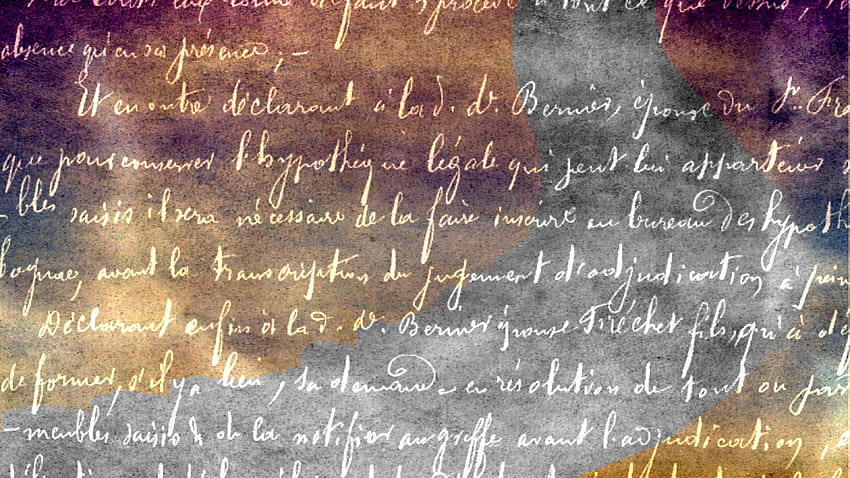 absence qu'en sa présence ; —
Et en outre déclarant à la d. de. Bernier, épouse du Sr. Fré
que pour conserver l'hypothèque légale qui peut lui appartenir s
-bles saisis il sera nécessaire de la faire inscrire au bureau des hypoth
avant la transcription du jugement d'adjudication, à pein
Déclarant enfin à la d. de. Bernier épouse Fréchet fils, qu'à dé
de former, s'il y a lieu, sa demande en résolution de tout ou par
-meubles saisis & de la notifier au greffe avant l'adjudication,